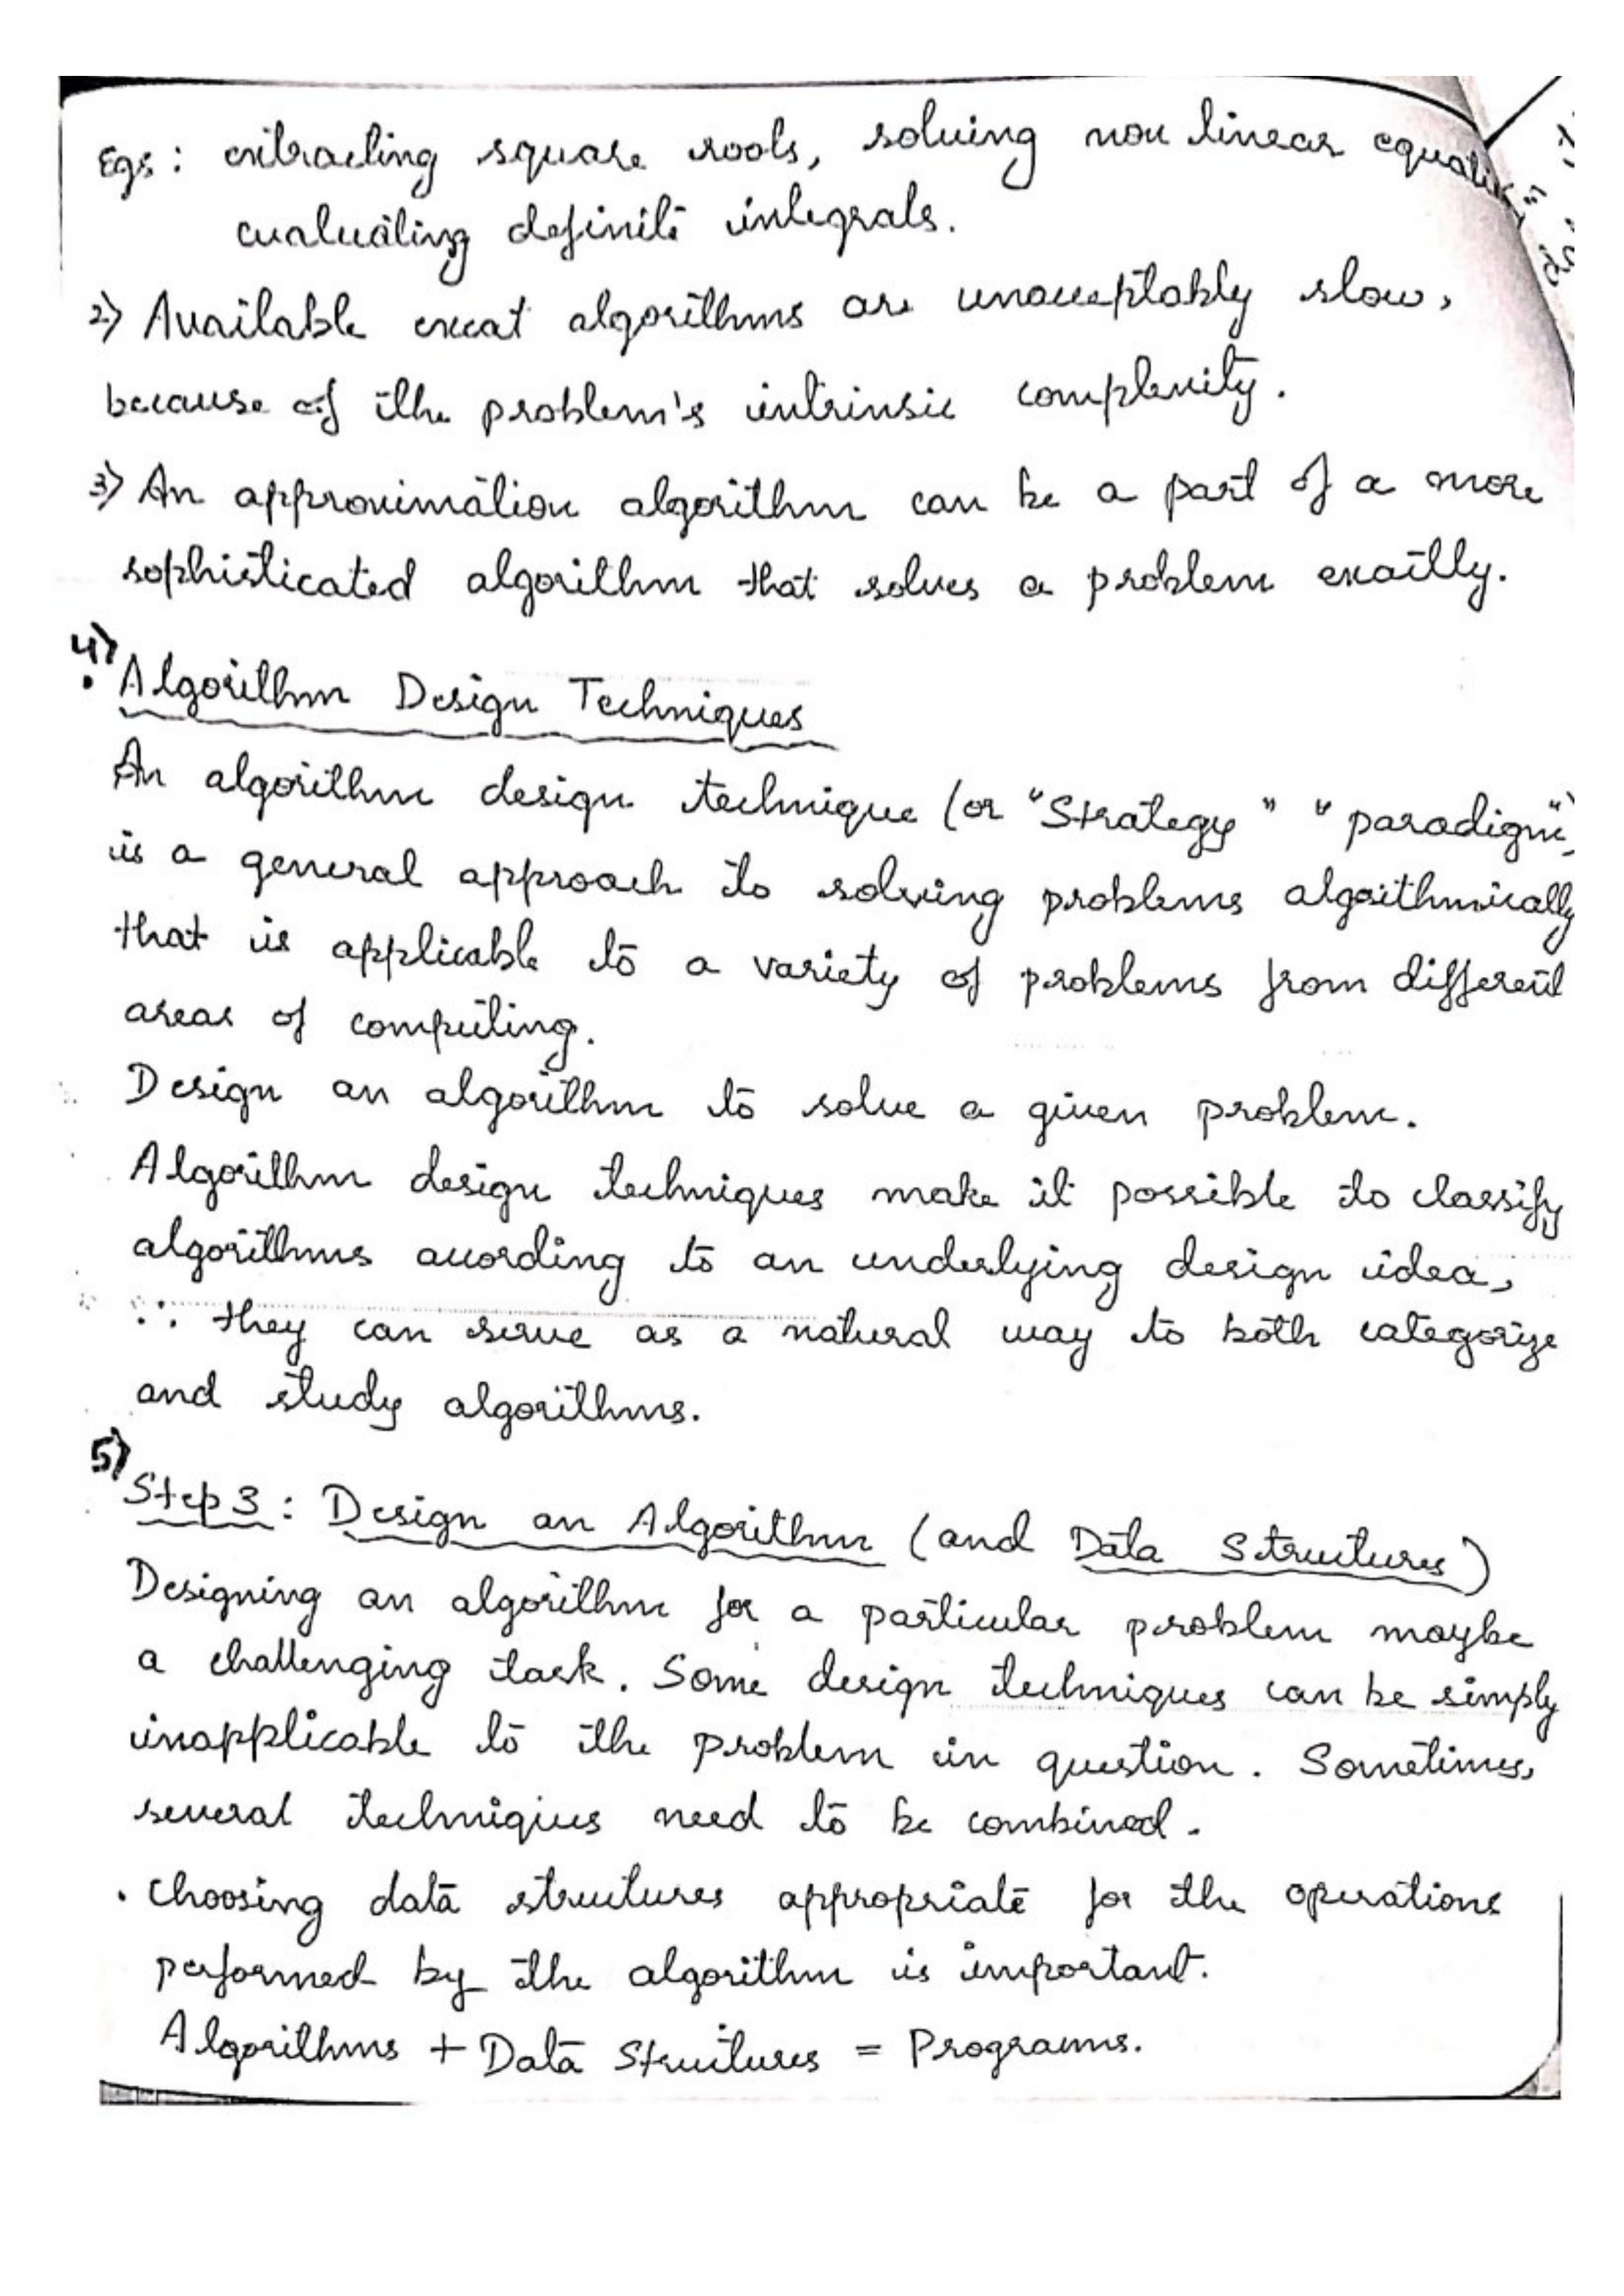 Egs: extracting square roots, solving non linear equati
evaluating definite integrals.
2) Available excat algorithms are unacceptably slow,
because of the problem's intrinsic complexity.
3) An approximation algorithm can be a part of a more
sophisticated algorithm that solves a problem exactly.
4)
• Algorithm Design Techniques
An algorithm design technique (or "Strategy" "paradigm")
is a general approach to solving problems algorithmically
that is applicable to a variety of problems from different
areas of computing.
Design an algorithm to solve a given problem.
Algorithm design techniques make it possible to classify
algorithms according to an underlying design idea,
∴ they can serve as a natural way to both categorize
and study algorithms.
5)
Step 3: Design an Algorithm (and Data Structures)
Designing an algorithm for a particular problem maybe
a challenging task. Some design techniques can be simply
inapplicable to the problem in question. Sometimes,
several techniques need to be combined.
• Choosing data structures appropriate for the operations
performed by the algorithm is important.
Algorithms + Data Structures = Programs.